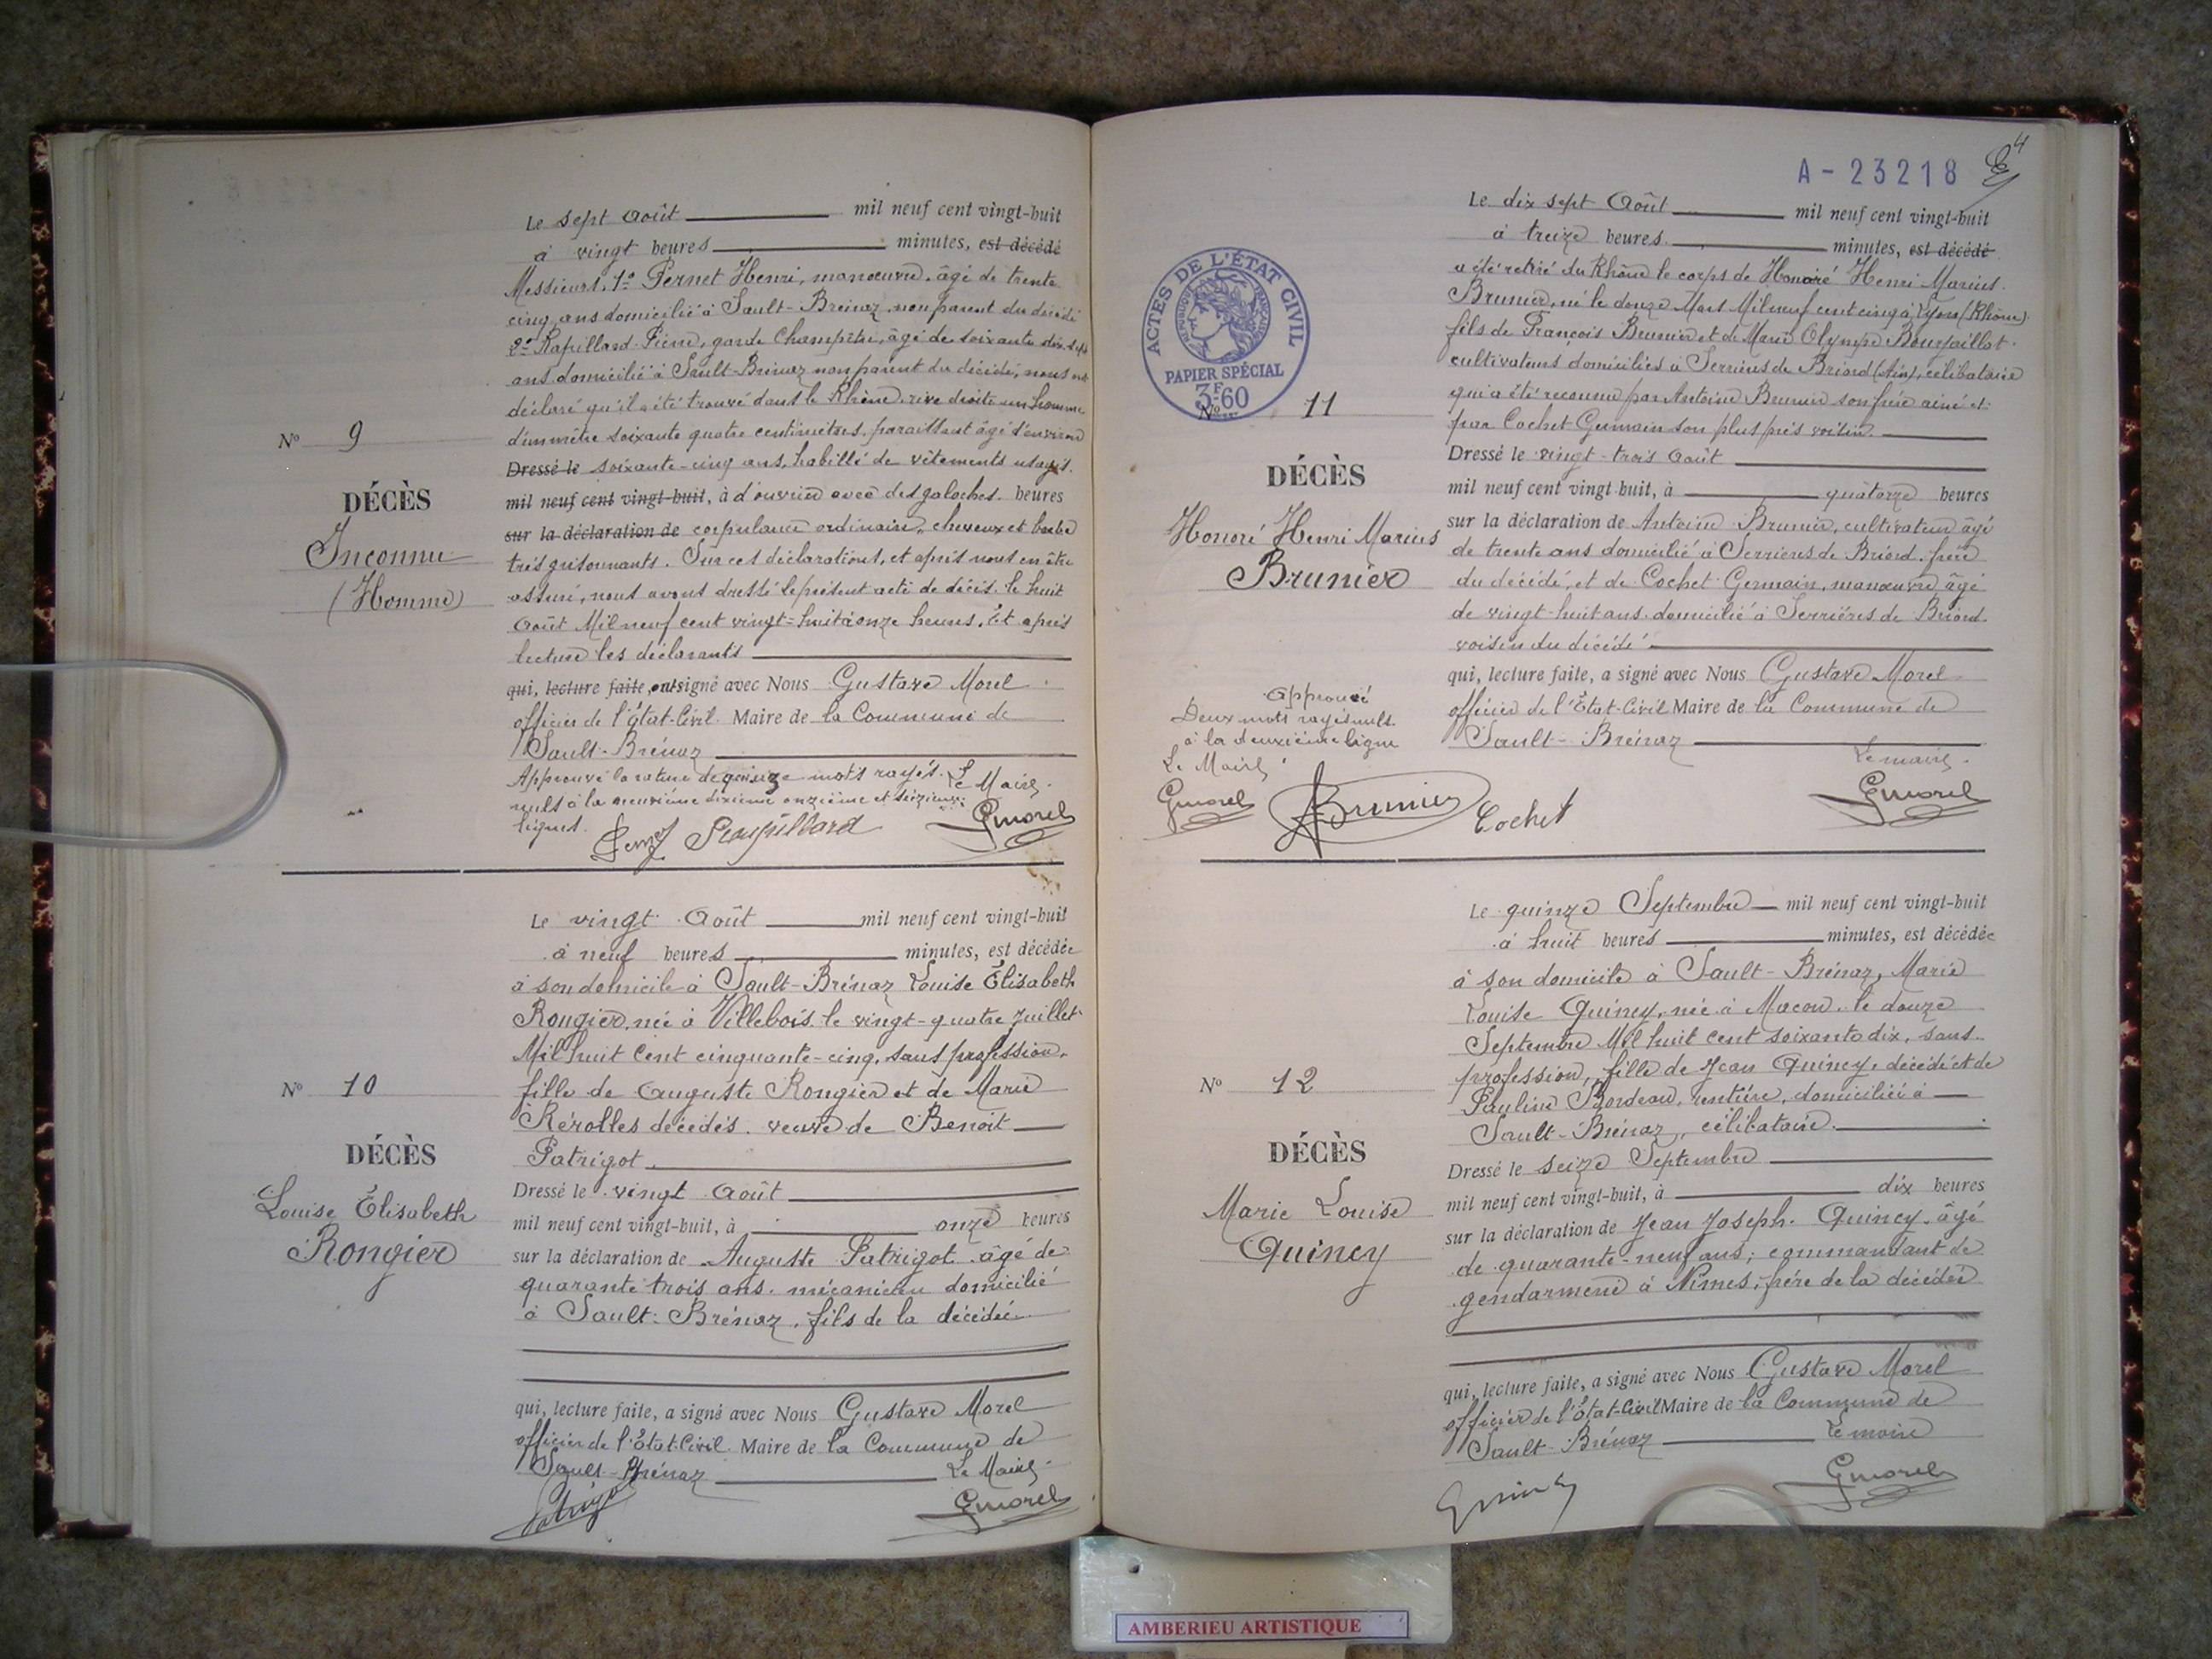 Le sept Août mil neuf cent vingt-huit
à vingt heures minutes, est décédé
Messieurs, 1º Pernet Henri, manœuvre, âgé de trente
cinq ans domicilié à Sault-Brénaz, non parent du décédé
2º Rapillard Pierre, garde Champêtre, âgé de soixante dix-sept
ans domicilié à Sault-Brénaz non parent du décédé, nous ont
déclaré qu'il a été trouvé dans le Rhône, rive droite un homme
Nº 9
d'un mètre soixante quatre centimètres, paraissant âgé d'environ
Dressé le soixante-cinq ans, habillé de vêtements usagés.
mil neuf cent vingt-huit, à d'ouvrier avec des galoches. heures
DÉCÈS
Inconnu
(Homme)
sur la déclaration de corpulance ordinaire, cheveux et barbe
très grisonnants. Sur ces déclarations, et après nous en être
assuré, nous avons dressé le présent acte de décès. le huit
Août Mil neuf cent vingt-huit à onze heures. Et après
lecture les déclarants
qui, lecture faite, ont signé avec Nous Gustave Morel
officier de l'État-Civil. Maire de la Commune de
Sault-Brénaz
Approuvé la rature de quinze mots rayés. Le Maire.
nuls à la neuvième dixième onzième et seizième
lignes.
Rapillard Gmorel
Le vingt Août mil neuf cent vingt-huit
à neuf heures minutes, est décédée
à son domicile à Sault-Brénaz Louise Élisabeth
Rongier, née à Villebois le vingt-quatre Juillet
Mil huit Cent cinquante-cinq, sans profession,
Nº 10
fille de Auguste Rongier et de Marie
Rérolles décédés. veuve de Benoît
Patrigot.
DÉCÈS
Louise Élisabeth
Rongier
Dressé le vingt Août
mil neuf cent vingt-huit, à onze heures
sur la déclaration de Auguste Patrigot âgé de
quarante trois ans. mécanicien domicilié
à Sault-Brénaz, fils de la décédée.
qui, lecture faite, a signé avec Nous Gustave Morel
officier de l'État-Civil. Maire de la Commune de
Sault-Brénaz Le Maire.
Patrigot Gmorel
A-23218
4
ACTES DE L'ÉTAT CIVIL
RÉPUBLIQUE FRANÇAISE
PAPIER SPÉCIAL
3F60
Le dix sept Août mil neuf cent vingt-huit
à treize heures minutes, est décédé
a été retiré du Rhône le corps de Honoré Henri Marius
Brunier, né le douze Mars Mil neuf cent cinq à Lyon (Rhône)
fils de François Brunier et de Marie Olympe Bourjaillat
cultivateurs domiciliés à Serrières de Briord (Ain), célibataire
Nº 11
qui a été reconnu par Antoine Brunier son frère ainé et
par Cochet Germain son plus près voisin.
Dressé le vingt-trois Août
DÉCÈS
Honoré Henri Marius
Brunier
mil neuf cent vingt-huit, à quatorze heures
sur la déclaration de Antoine Brunier, cultivateur âgé
de trente ans domicilié à Serrieres de Briord. frère
du décédé, et de Cochet Germain, manœuvre âgé
de vingt-huit ans domicilié à Serrières de Briord.
voisin du décédé
qui, lecture faite, a signé avec Nous Gustave Morel
officier de l'État-Civil Maire de la Commune de
Sault-Brénaz
Le maire.
Approuvé
Deux mots rayés nuls.
à la deuxième ligne
Le Maire
Gmorel Brunier Cochet Gmorel
Le quinze Septembre mil neuf cent vingt-huit
à huit heures minutes, est décédée
à son domicile à Sault-Brénaz, Marie
Louise Quincy, née à Macon. le douze
Septembre Mil huit cent soixante dix, sans
Nº 12
profession, fille de Jean Quincy, décédé et de
Pauline Bordeau, rentière, domiciliée à
Sault-Brénaz, célibataire.
DÉCÈS
Marie Louise
Quincy
Dressé le seize Septembre
mil neuf cent vingt-huit, à dix heures
sur la déclaration de Jean Joseph Quincy âgé
de quarante-neuf ans, commandant de
gendarmerie à Nîmes, frère de la décédée
qui, lecture faite, a signé avec Nous Gustave Morel
officier de l'État-Civil Maire de la Commune de
Sault-Brénaz Le maire
Quincy Gmorel
AMBERIEU ARTISTIQUE